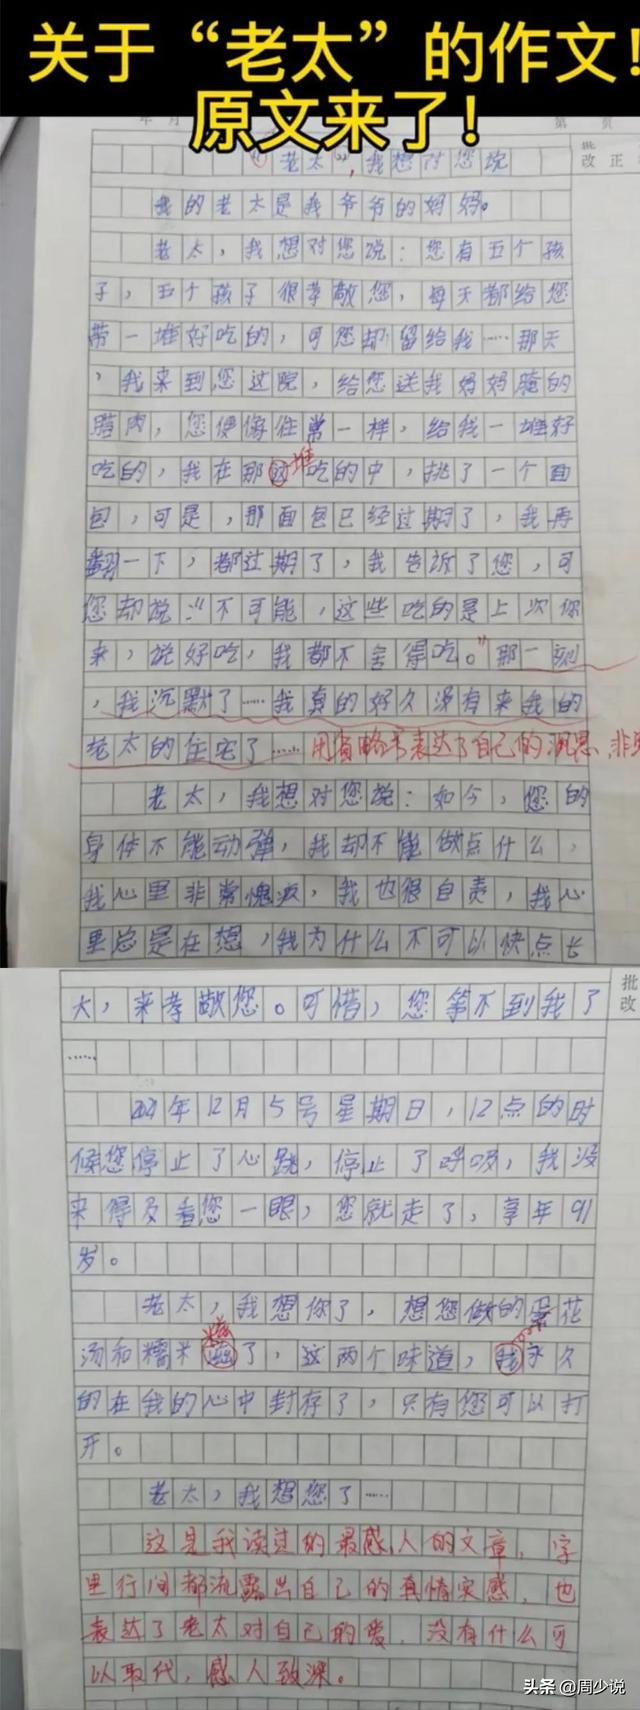 关于“老太”的作文！
原文来了！
年 月
第 页
批改 正
“老太”，我想对您说
我的老太是我爷爷的妈妈。
老太，我想对您说：您有五个孩
子，五个孩子很孝敬您，每天都给您
带一堆好吃的，可您却留给我……那天
，我来到您这院，给您送我妈妈腌的
腊肉，您便像往常一样，给我一堆好
堆
吃的，我在那吃的中，挑了一个面
包，可是，那面包已经过期了，我再
翻一下，都过期了，我告诉了您，可
您却说：“不可能，这些吃的是上次你
来，说好吃，我都不舍得吃。”那一刻
，我沉默了……我真的好久没有来我的
老太的住宅了……用省略号表达了自己的沉思，非
老太，我想对您说：如今，您的
身体不能动弹，我却不能做点什么，
我心里非常愧疚，我也很自责，我心
里总是在想，我为什么不可以快点长
批改
大，来孝敬您。可惜，您等不到我了
……
2021年12月5号星期日，12点的时
候您停止了心跳，停止了呼吸，我没
来得及看您一眼，您就走了，享年91
岁。
老太，我想你了，想您做的蛋花
汤和糯米了，这两个味道，我永久
的在我的心中封存了，只有您可以打
开。
老太，我想您了……
这是我读过的最感人的文章，字
里行间都流露出自己的真情实感，也
表达了老太对自己的爱，没有什么可
以取代，感人致深。
头条 @周少说